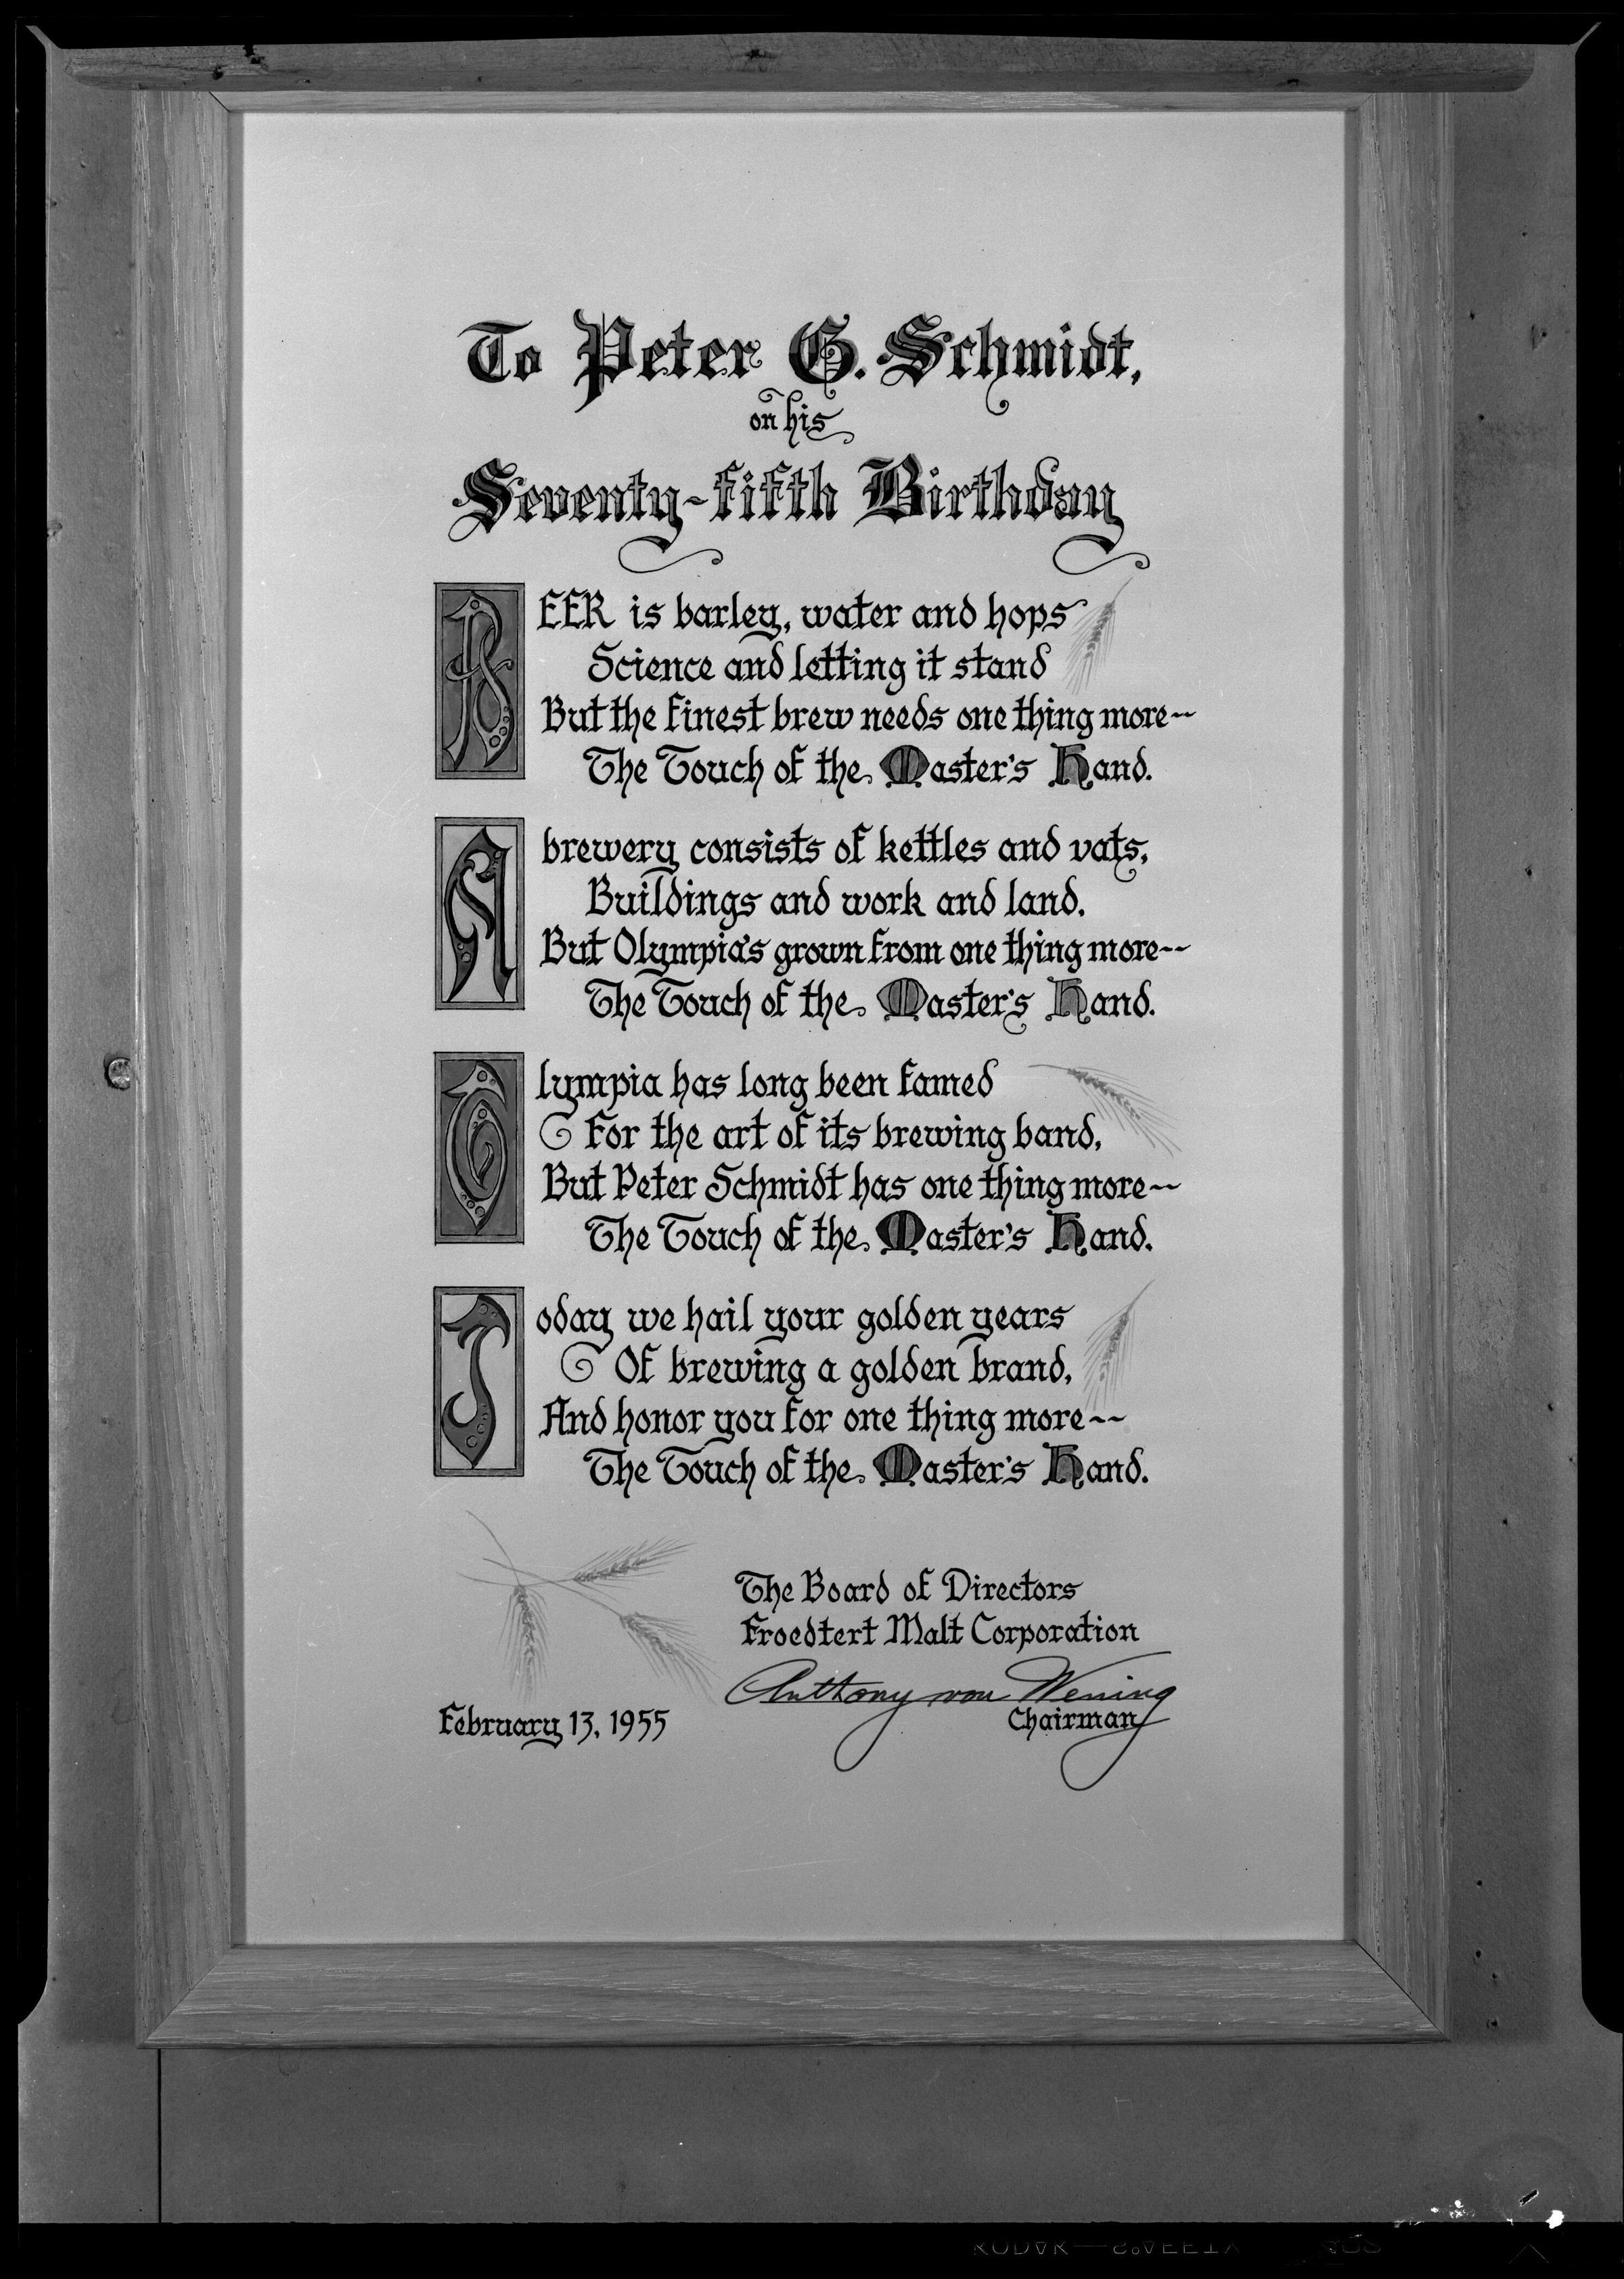 To Peter G. Schmidt,
on his
Seventy-fifth Birthday
BEER is barley, water and hops
Science and letting it stand
But the finest brew needs one thing more--
The Touch of the Master's Hand.
A brewery consists of kettles and vats,
Buildings and work and land.
But Olympia's grown from one thing more--
The Touch of the Master's Hand.
Olympia has long been famed
For the art of its brewing band,
But Peter Schmidt has one thing more--
The Touch of the Master's Hand.
Today we hail your golden years
Of brewing a golden brand,
And honor you for one thing more--
The Touch of the Master's Hand.
The Board of Directors
Froedtert Malt Corporation
Anthony von Wening
Chairman
February 13, 1955